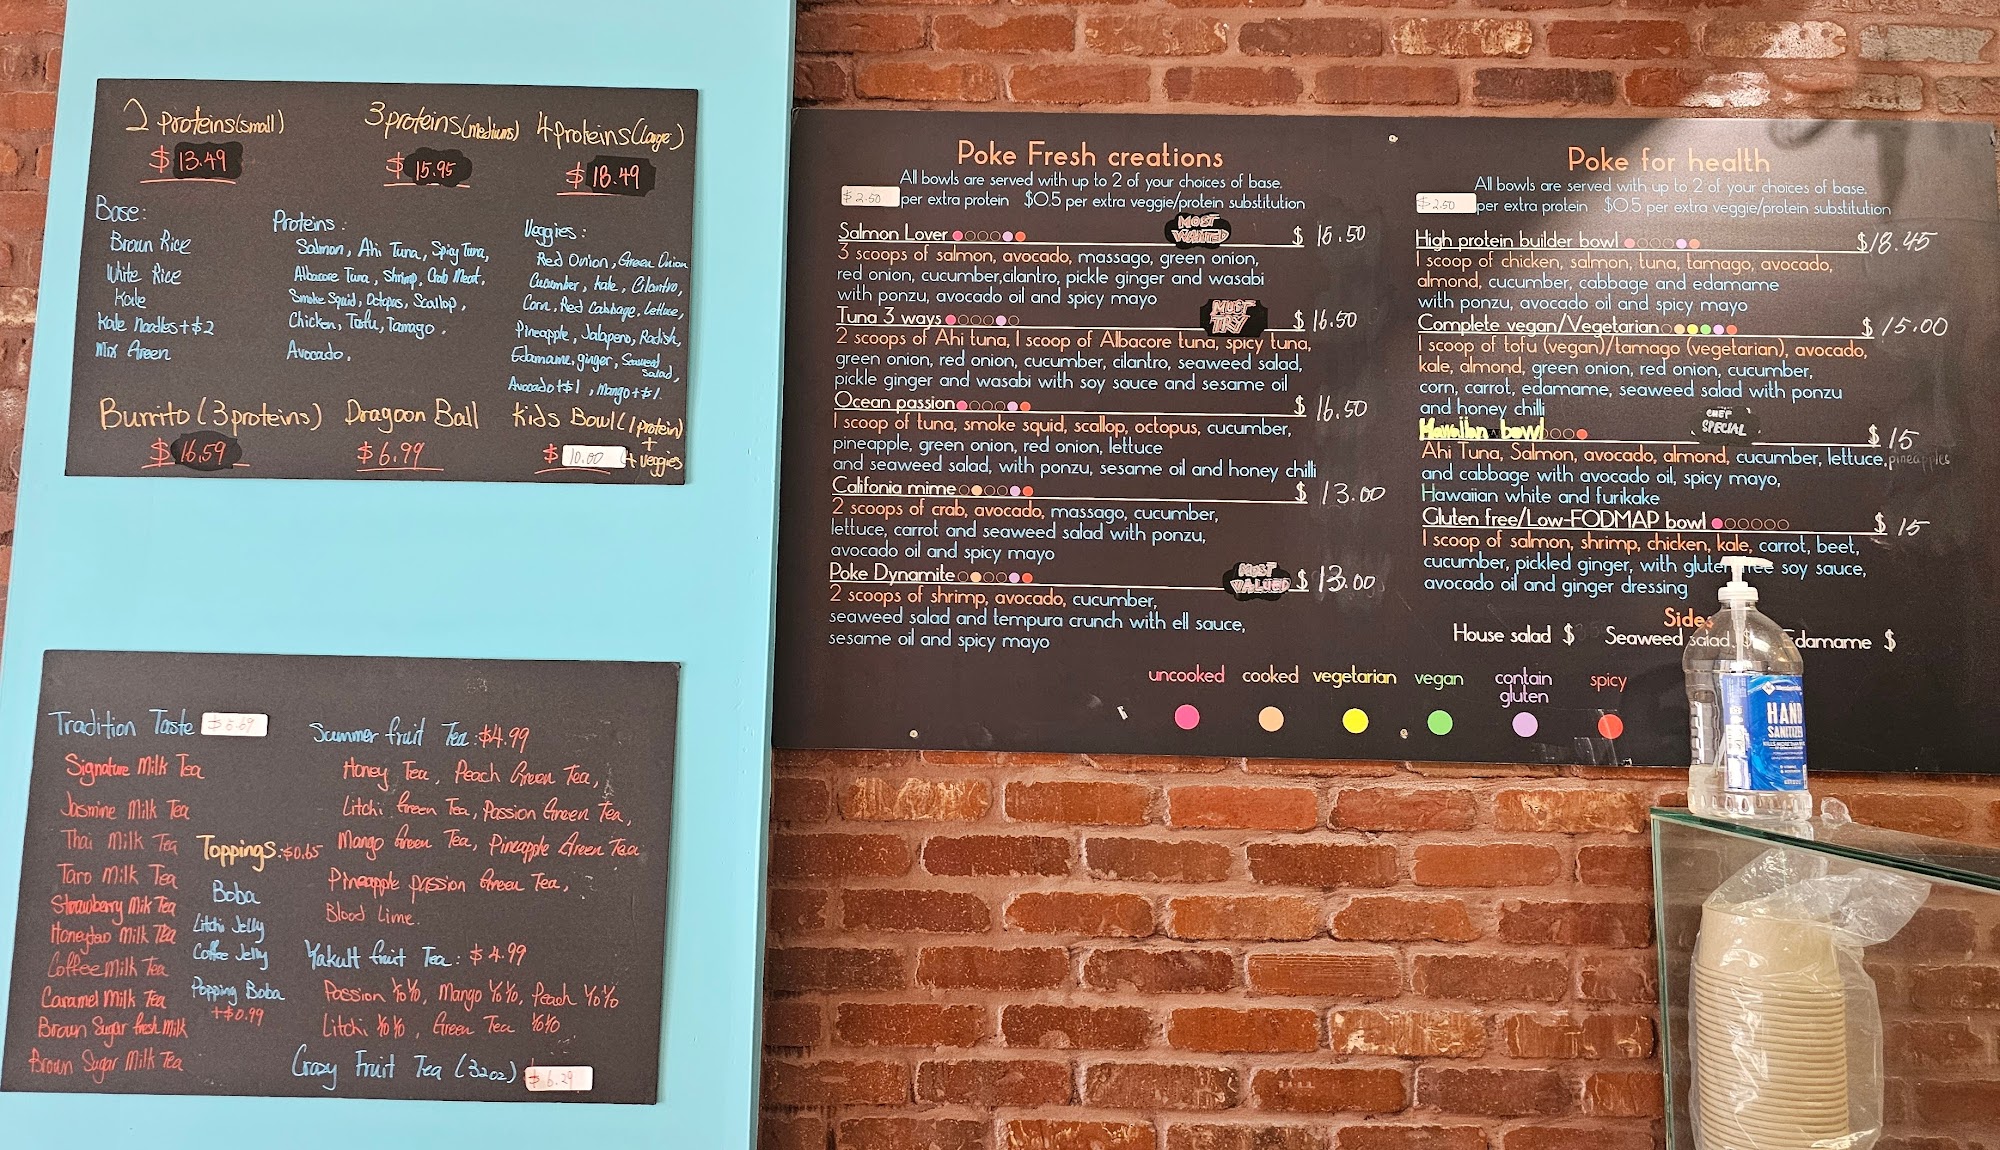 2 proteins(small)
$ 13.49
3 proteins(medium)
$ 15.95
4 proteins(large)
$ 18.49
Base:
Brown Rice
White Rice
Kale
Kale Noodles+$2
Mix Green
Proteins:
Salmon, Ahi Tuna, Spicy Tuna,
Albacore Tuna, Shrimp, Crab Meat,
Smoke Squid, Octopus, Scallop,
Chicken, Tofu, Tamago,
Avocado.
Veggies:
Red Onion, Green Onion
Cucumber, Kale, Cilantro,
Corn, Red Cabbage, Lettuce,
Pineapple, Jalapeno, Radish,
Edamame, ginger, Seaweed Salad,
Avocado+$1, Mango+$1.
Burrito (3 proteins)
$ 16.59
Dragoon Ball
$ 6.99
Kids Bowl (1 protein)
+
4 veggies
$ 10.00
Tradition Taste $5.69
Signature Milk Tea
Jasmine Milk Tea
Thai Milk Tea
Taro Milk Tea
Strawberry Milk Tea
Honeydew Milk Tea
Coffee Milk Tea
Caramel Milk Tea
Brown Sugar fresh Milk
Brown Sugar Milk Tea
Toppings:$0.65
Boba
Litchi Jelly
Coffee Jelly
Popping Boba
+$0.99
Summer fruit Tea:$4.99
Honey Tea, Peach Green Tea,
Litchi Green Tea, Passion Green Tea,
Mango Green Tea, Pineapple Green Tea
Pineapple passion Green Tea,
Blood Lime.
Yakult fruit Tea: $4.99
Passion YoYo, Mango YoYo, Peach YoYo
Litchi YoYo, Green Tea YoYo
Crazy Fruit Tea (32oz) $6.29
Poke Fresh creations
All bowls are served with up to 2 of your choices of base.
$2.50 per extra protein $0.5 per extra veggie/protein substitution
Salmon Lover MOST WANTED $ 16.50
3 scoops of salmon, avocado, massago, green onion,
red onion, cucumber,cilantro, pickle ginger and wasabi
with ponzu, avocado oil and spicy mayo
Tuna 3 ways MUST TRY $ 16.50
2 scoops of Ahi tuna, 1 scoop of Albacore tuna, spicy tuna,
green onion, red onion, cucumber, cilantro, seaweed salad,
pickle ginger and wasabi with soy sauce and sesame oil
Ocean passion $ 16.50
1 scoop of tuna, smoke squid, scallop, octopus, cucumber,
pineapple, green onion, red onion, lettuce
and seaweed salad, with ponzu, sesame oil and honey chilli
Califonia mime $ 13.00
2 scoops of crab, avocado, massago, cucumber,
lettuce, carrot and seaweed salad with ponzu,
avocado oil and spicy mayo
Poke Dynamite MOST VALUED $ 13.00
2 scoops of shrimp, avocado, cucumber,
seaweed salad and tempura crunch with ell sauce,
sesame oil and spicy mayo
Poke for health
All bowls are served with up to 2 of your choices of base.
$2.50 per extra protein $0.5 per extra veggie/protein substitution
High protein builder bowl $18.45
1 scoop of chicken, salmon, tuna, tamago, avocado,
almond, cucumber, cabbage and edamame
with ponzu, avocado oil and spicy mayo
Complete vegan/Vegetarian $ 15.00
1 scoop of tofu (vegan)/tamago (vegetarian), avocado,
kale, almond, green onion, red onion, cucumber,
corn, carrot, edamame, seaweed salad with ponzu
and honey chilli
Hawaiian bowl CHEF SPECIAL $ 15
Ahi Tuna, Salmon, avocado, almond, cucumber, lettuce, pineapples
and cabbage with avocado oil, spicy mayo,
Hawaiian white and furikake
Gluten free/Low-FODMAP bowl $ 15
1 scoop of salmon, shrimp, chicken, kale, carrot, beet,
cucumber, pickled ginger, with gluten free soy sauce,
avocado oil and ginger dressing
Sides
House salad $ Seaweed salad $ Edamame $
uncooked cooked vegetarian vegan contain gluten spicy
HAND
SANITIZER